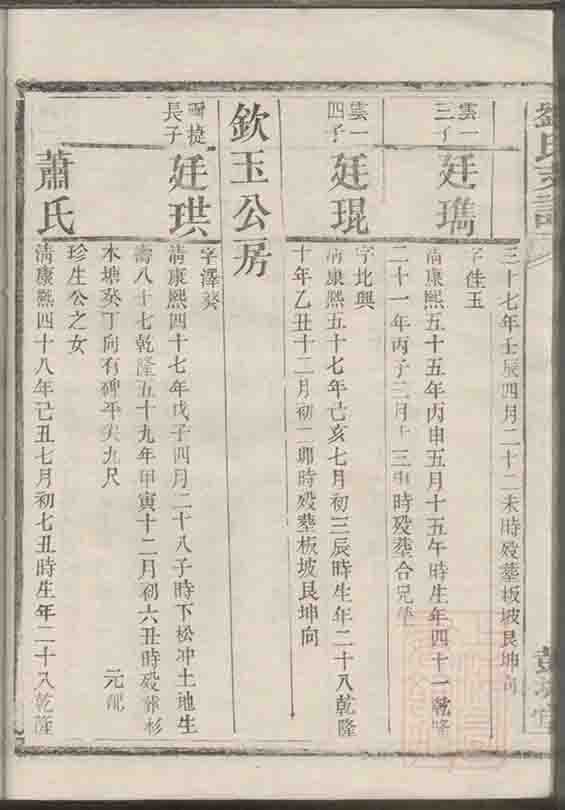 三十七年壬辰四月二十二未時殁塟板坡艮坤向
雲一
三子
廷瓗
字佳玉
清康熙五十五年丙申五月十五午時生年四十一乾隆
二十一年丙子三月十三申時殁塟合兄
雲一
四子
廷琨
字比興
清康熙五十七年己亥七月初三辰時生年二十八乾隆
十年乙丑十二月初二卯時殁塟板坡艮坤向
欽玉公房
長子
廷珙
字澤癸
清康熙四十七年戊子四月二十八子時下松冲土地生
壽八十七乾隆五十九年甲寅十二月初六丑時殁塟杉
木塘癸丁向有碑平尖九尺
元配
蕭氏
珍生公之女
清康熙四十八年己丑七月初七丑時生年二十八乾隆